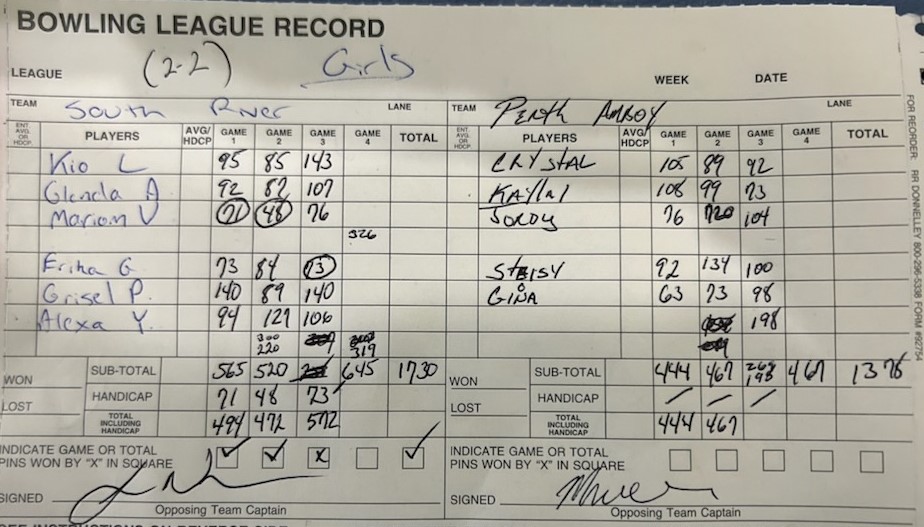 BOWLING LEAGUE RECORD
LEAGUE (2-2) Girls WEEK DATE
TEAM South River LANE TEAM Perth Amboy LANE
ENT. AVG. OR HDCP. PLAYERS AVG/HDCP GAME 1 GAME 2 GAME 3 GAME 4 TOTAL ENT. AVG. OR HDCP. PLAYERS AVG/HDCP GAME 1 GAME 2 GAME 3 GAME 4 TOTAL
Kio L 95 85 143 CRYSTAL 105 89 92
Glenda A 92 82 107 108 99 73
Mariom V 71 48 76 JORDY 76 120 104
326
Erika G 73 84 73 STEISY 92 134 100
Grisel P. 140 89 140 GINA 63 73 98
Alexa Y. 94 127 106 198
300
220 319
WON SUB-TOTAL 565 520 645 1730 WON SUB-TOTAL 444 467 269 198 467 1378
LOST HANDICAP 71 48 73 LOST HANDICAP / / /
TOTAL INCLUDING HANDICAP 494 472 572 TOTAL INCLUDING HANDICAP 444 467
INDICATE GAME OR TOTAL PINS WON BY "X" IN SQUARE ✓ ✓ X ✓ INDICATE GAME OR TOTAL PINS WON BY "X" IN SQUARE
SIGNED SIGNED
Opposing Team Captain Opposing Team Captain
FOR REORDER RR DONNELLEY 800-296-5336 FORM #92754